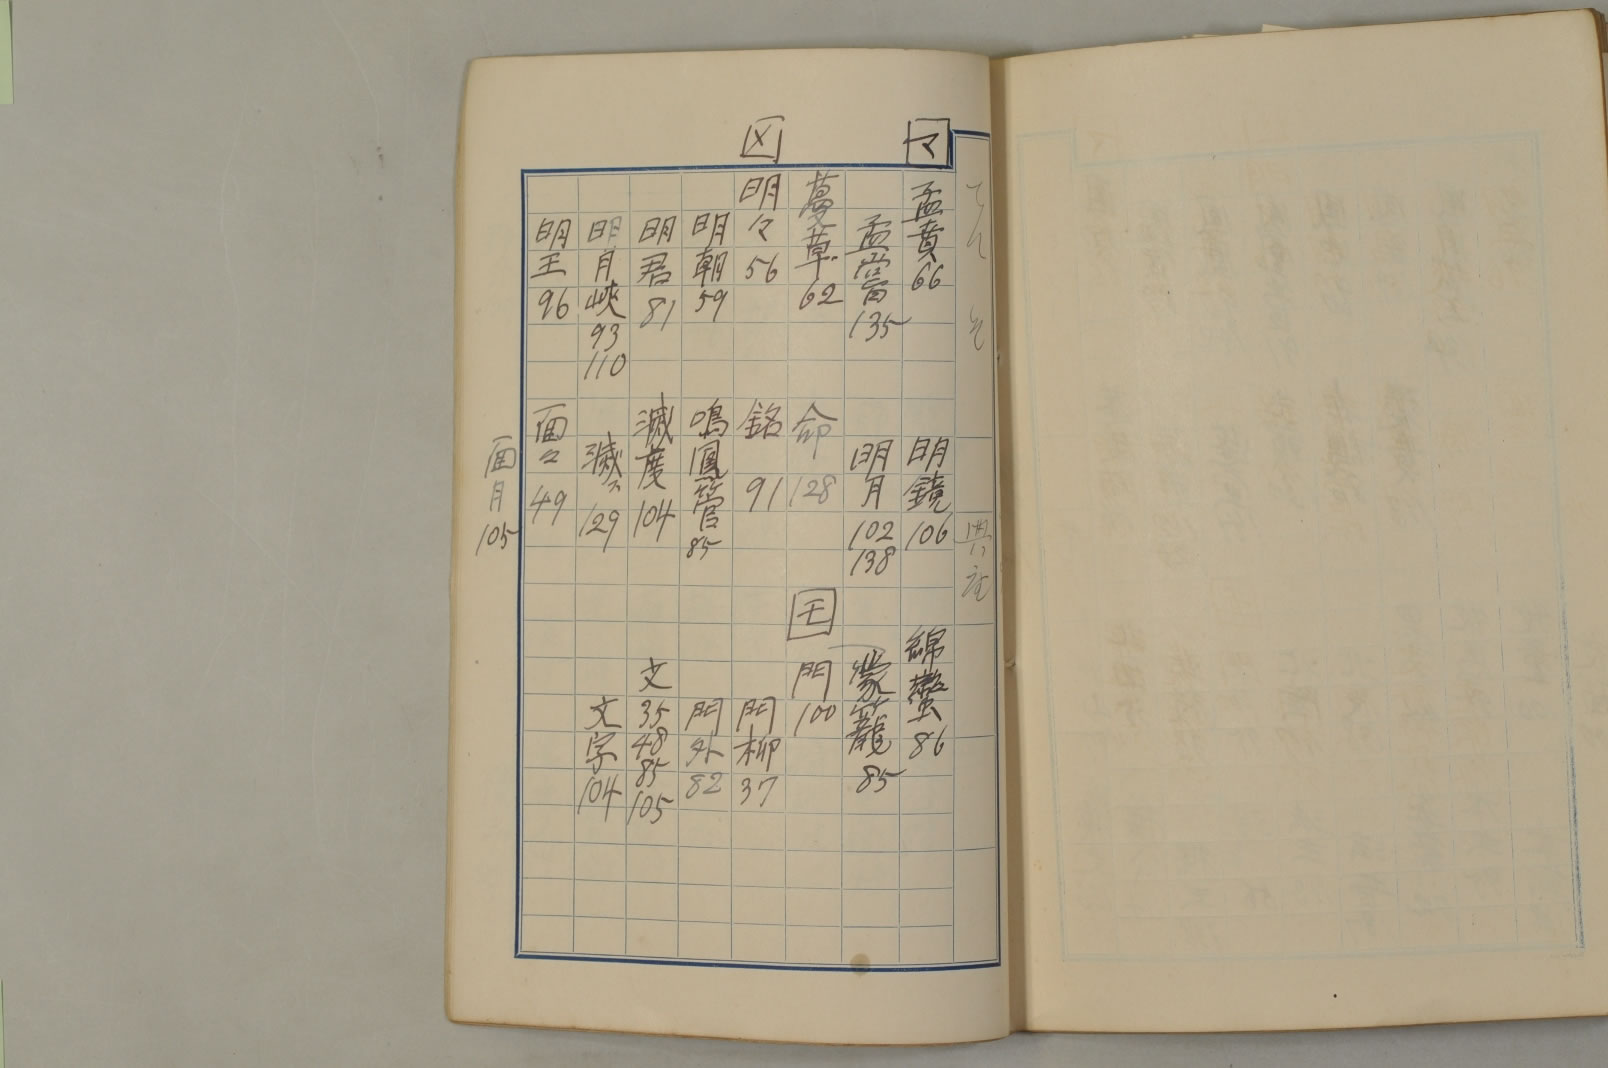 マ
孟賁 66
孟嘗 135
蔓草 62
メ
明々 56
明朝 59
明君 81
明月峽 93 110
明王 96
明鏡 106
明月 102 138
命 128
銘 91
鳴鳳管 85
滅度 104
滅ス 129
面々 49
面月 105
綿蠻 86
モ
蒙籠 85
門 100
門柳 37
門外 82
文 35 48 85 105
文字 104